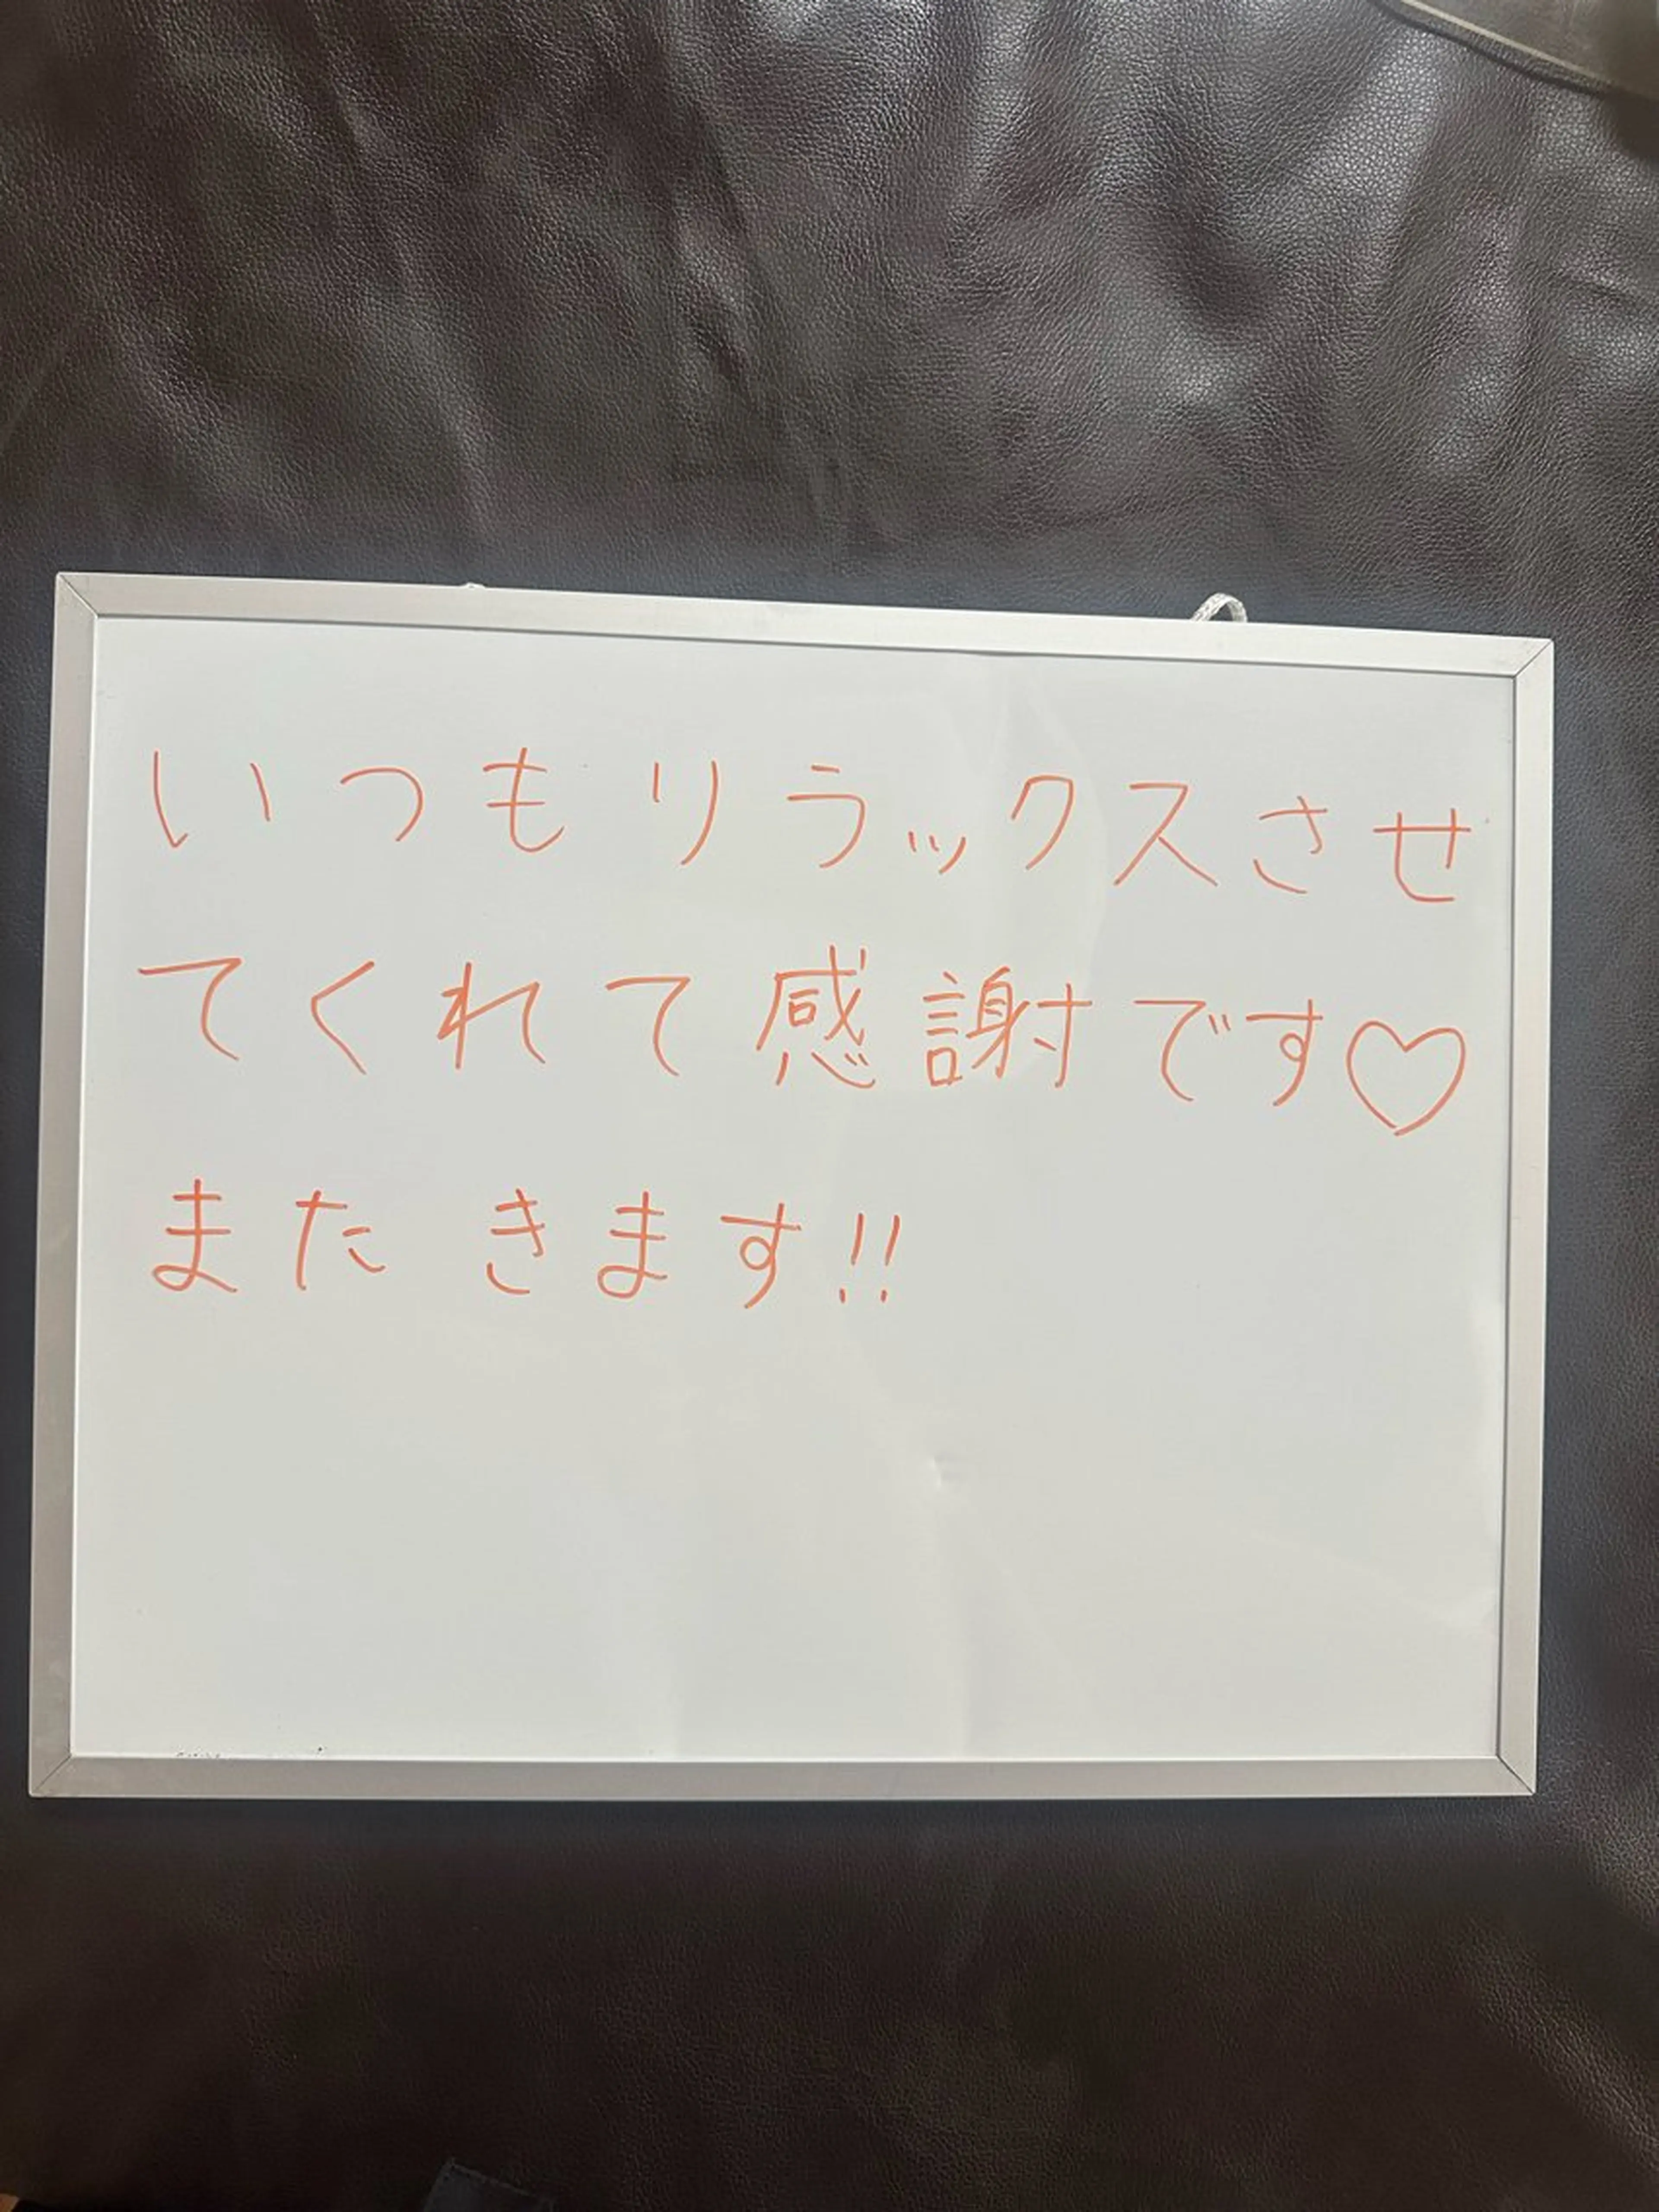 いつもリラックスさせ
てくれて感謝です♡
また きます!!